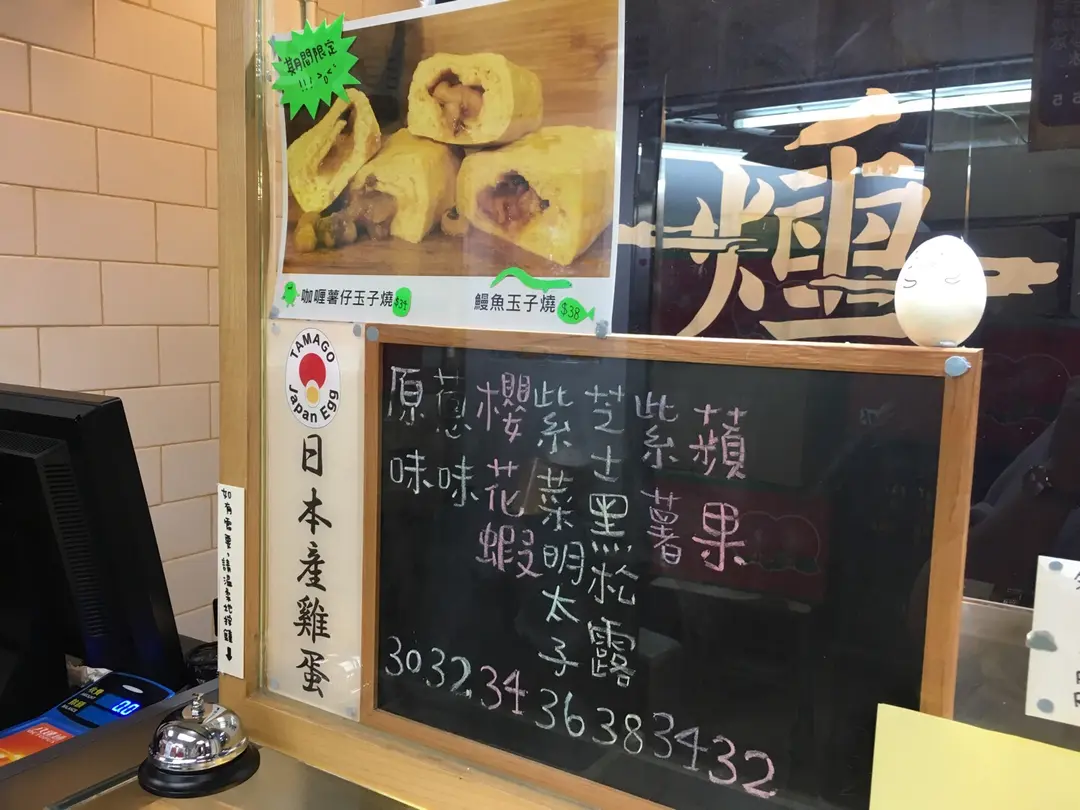 期間限定
!!! >o<
咖喱薯仔玉子燒 $34
鰻魚玉子燒 $38
燶
TAMAGO
Japan Egg
日本産雞蛋
如有需要，請溫柔地按鐘
原味 30
蔥味 32
櫻花蝦 34
紫菜明太子 36
芝士黑松露 38
紫薯 34
蘋果 32
0.0